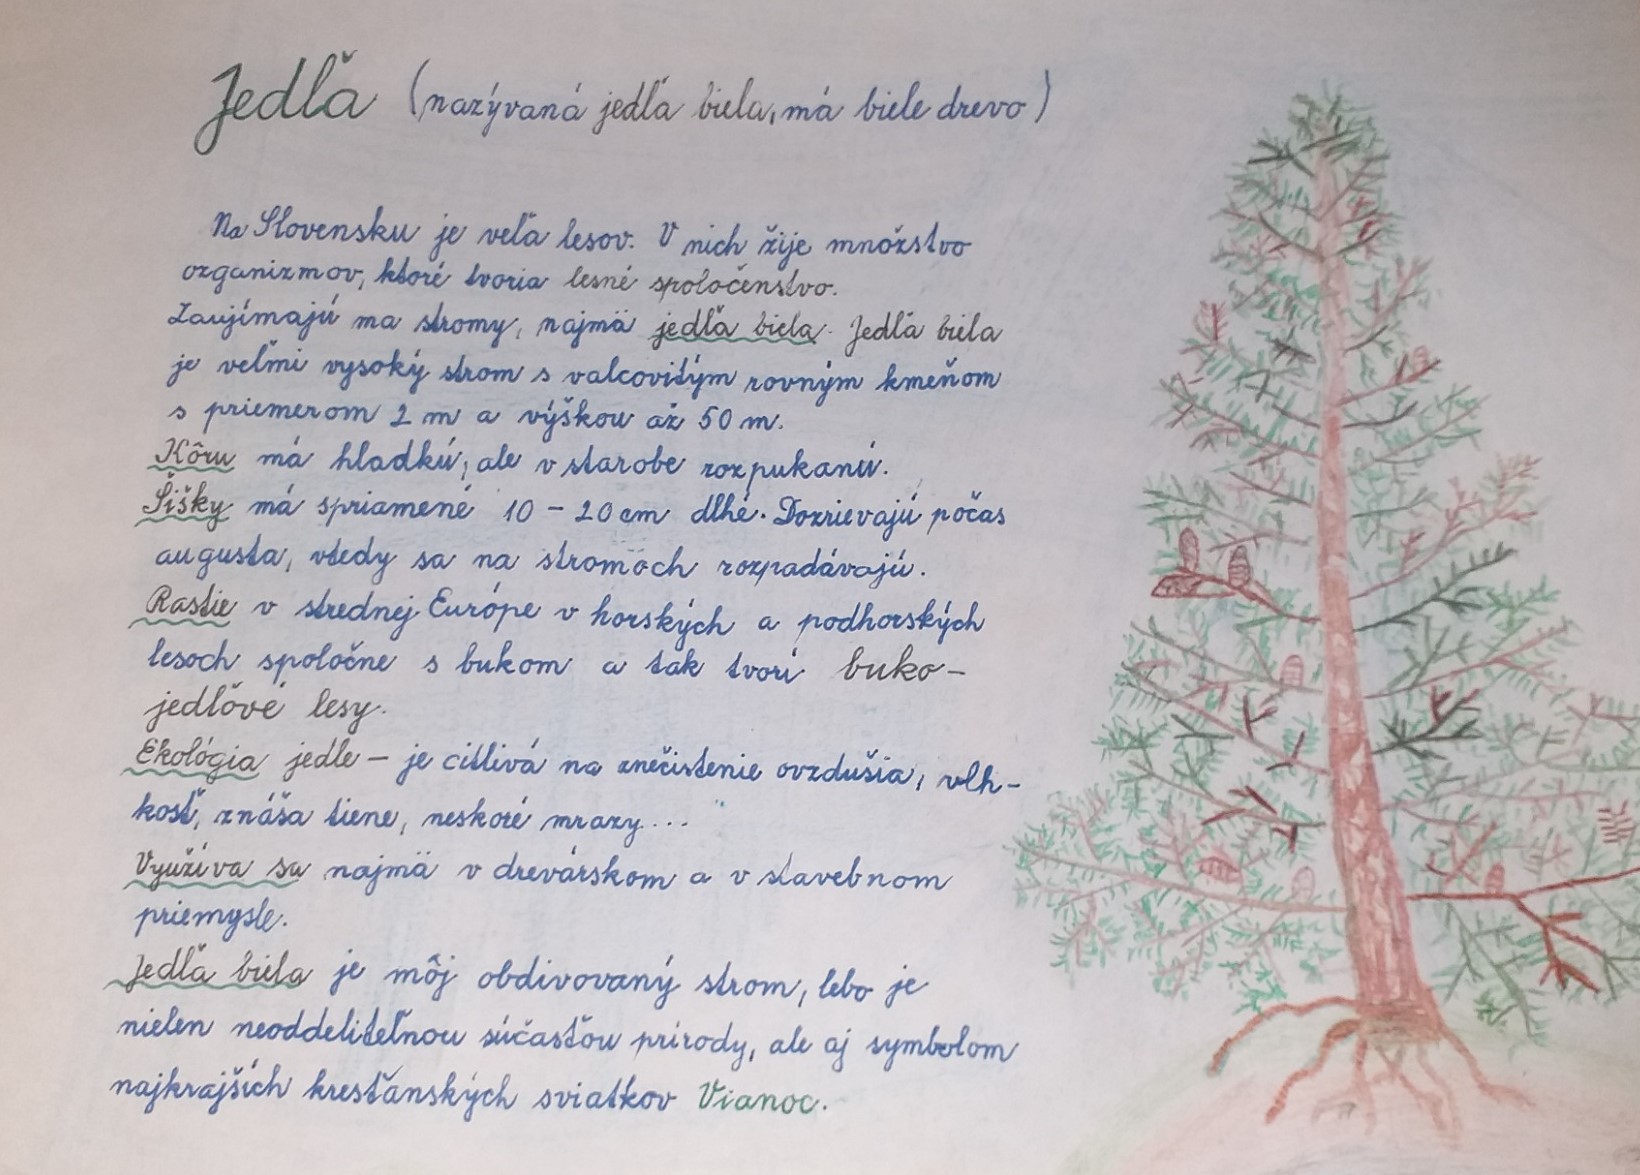 Jedľa (nazývaná jedľa biela, má biele drevo)
Na Slovensku je veľa lesov. V nich žije množstvo
organizmov, ktoré tvoria lesné spoločenstvo.
Zaujímajú ma stromy, najmä jedľa biela. Jedľa biela
je veľmi vysoký strom s valcovitým rovným kmeňom
s priemerom 2 m a výškou až 50 m.
Kôru má hladkú, ale v starobe rozpukanú.
Šišky má spriamené 10 - 20 cm dlhé. Dozrievajú počas
augusta, vtedy sa na stromoch rozpadávajú.
Rastie v strednej Európe v horských a podhorských
lesoch spoločne s bukom a tak tvorí buko-
jedľové lesy.
Ekológia jedle - je citlivá na znečistenie ovzdušia, vlh-
kosť, znáša tiene, neskoré mrazy...
Využíva sa najmä v drevárskom a v stavebnom
priemysle.
Jedľa biela je môj obdivovaný strom, lebo je
nielen neoddeliteľnou súčasťou prírody, ale aj symbolom
najkrajších kresťanských sviatkov Vianoc.